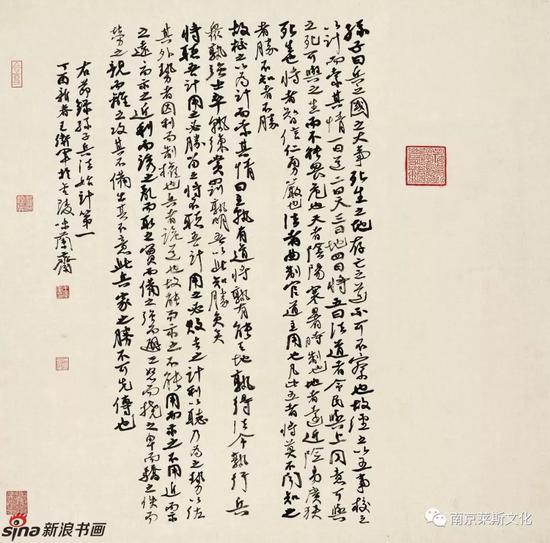 孫子曰兵者國之大事死生之地存亡之道不可不察也故經之以五事校之
以計而索其情一曰道二曰天三曰地四曰將五曰法道者令民與上同意可與
之死可與之生而不畏危也天者陰陽寒暑時制也地者遠近險易廣狹
死生也將者智信仁勇嚴也法者曲制官道主用也凡此五者將莫不聞知之
者勝不知者不勝
故校之以為計而索其情曰主孰有道將孰有能天地孰得法令孰行兵
眾孰強士卒孰練賞罰孰明吾以此知勝負矣
將聽吾計用之必勝留之將不聽吾計用之必敗去之計利以聽乃為之勢以佐
其外勢者因利而制權也兵者詭道也故能而示之不能用而示之不用近而示
之遠遠而示之近利而誘之亂而取之實而備之強而避之怒而撓之卑而驕之佚而
勞之親而離之攻其不備出其不意此兵家之勝不可先傳也
右節錄孫子兵法始計第一
丁酉新春王衛軍於金陵蘭齋
sina新浪书画
南京莱斯文化